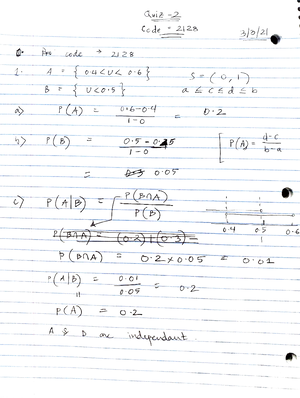 Quiz - 2
Code = 2128
3/8/21
Pro code → 2128
1. A = { 0.4<U< 0.6 } S = ( 0, 1 )
B = { U<0.5 } a ≤ c ≤ d ≤ b
a) P(A) = 0.6-0.4 / 1-0 = 0.2
b) P(B) = 0.5 - 0.45 / 1-0 [ P(A) = d-c / b-a
= 0.05
c) P(A|B) = P(B∩A) / P(B)
0.4 0.5 0.6
P(B∩A) = (0.2) | (0.3) =
P(B∩A) = 0.2 x 0.05 = 0.01
P(A|B) = 0.01 / 0.05 = 0.2
P(A) = 0.2
A & B are independant.